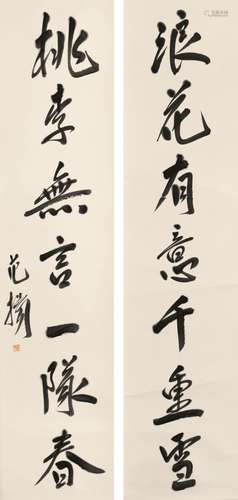 浪花有意千重雪
桃李無言一隊春
范揚